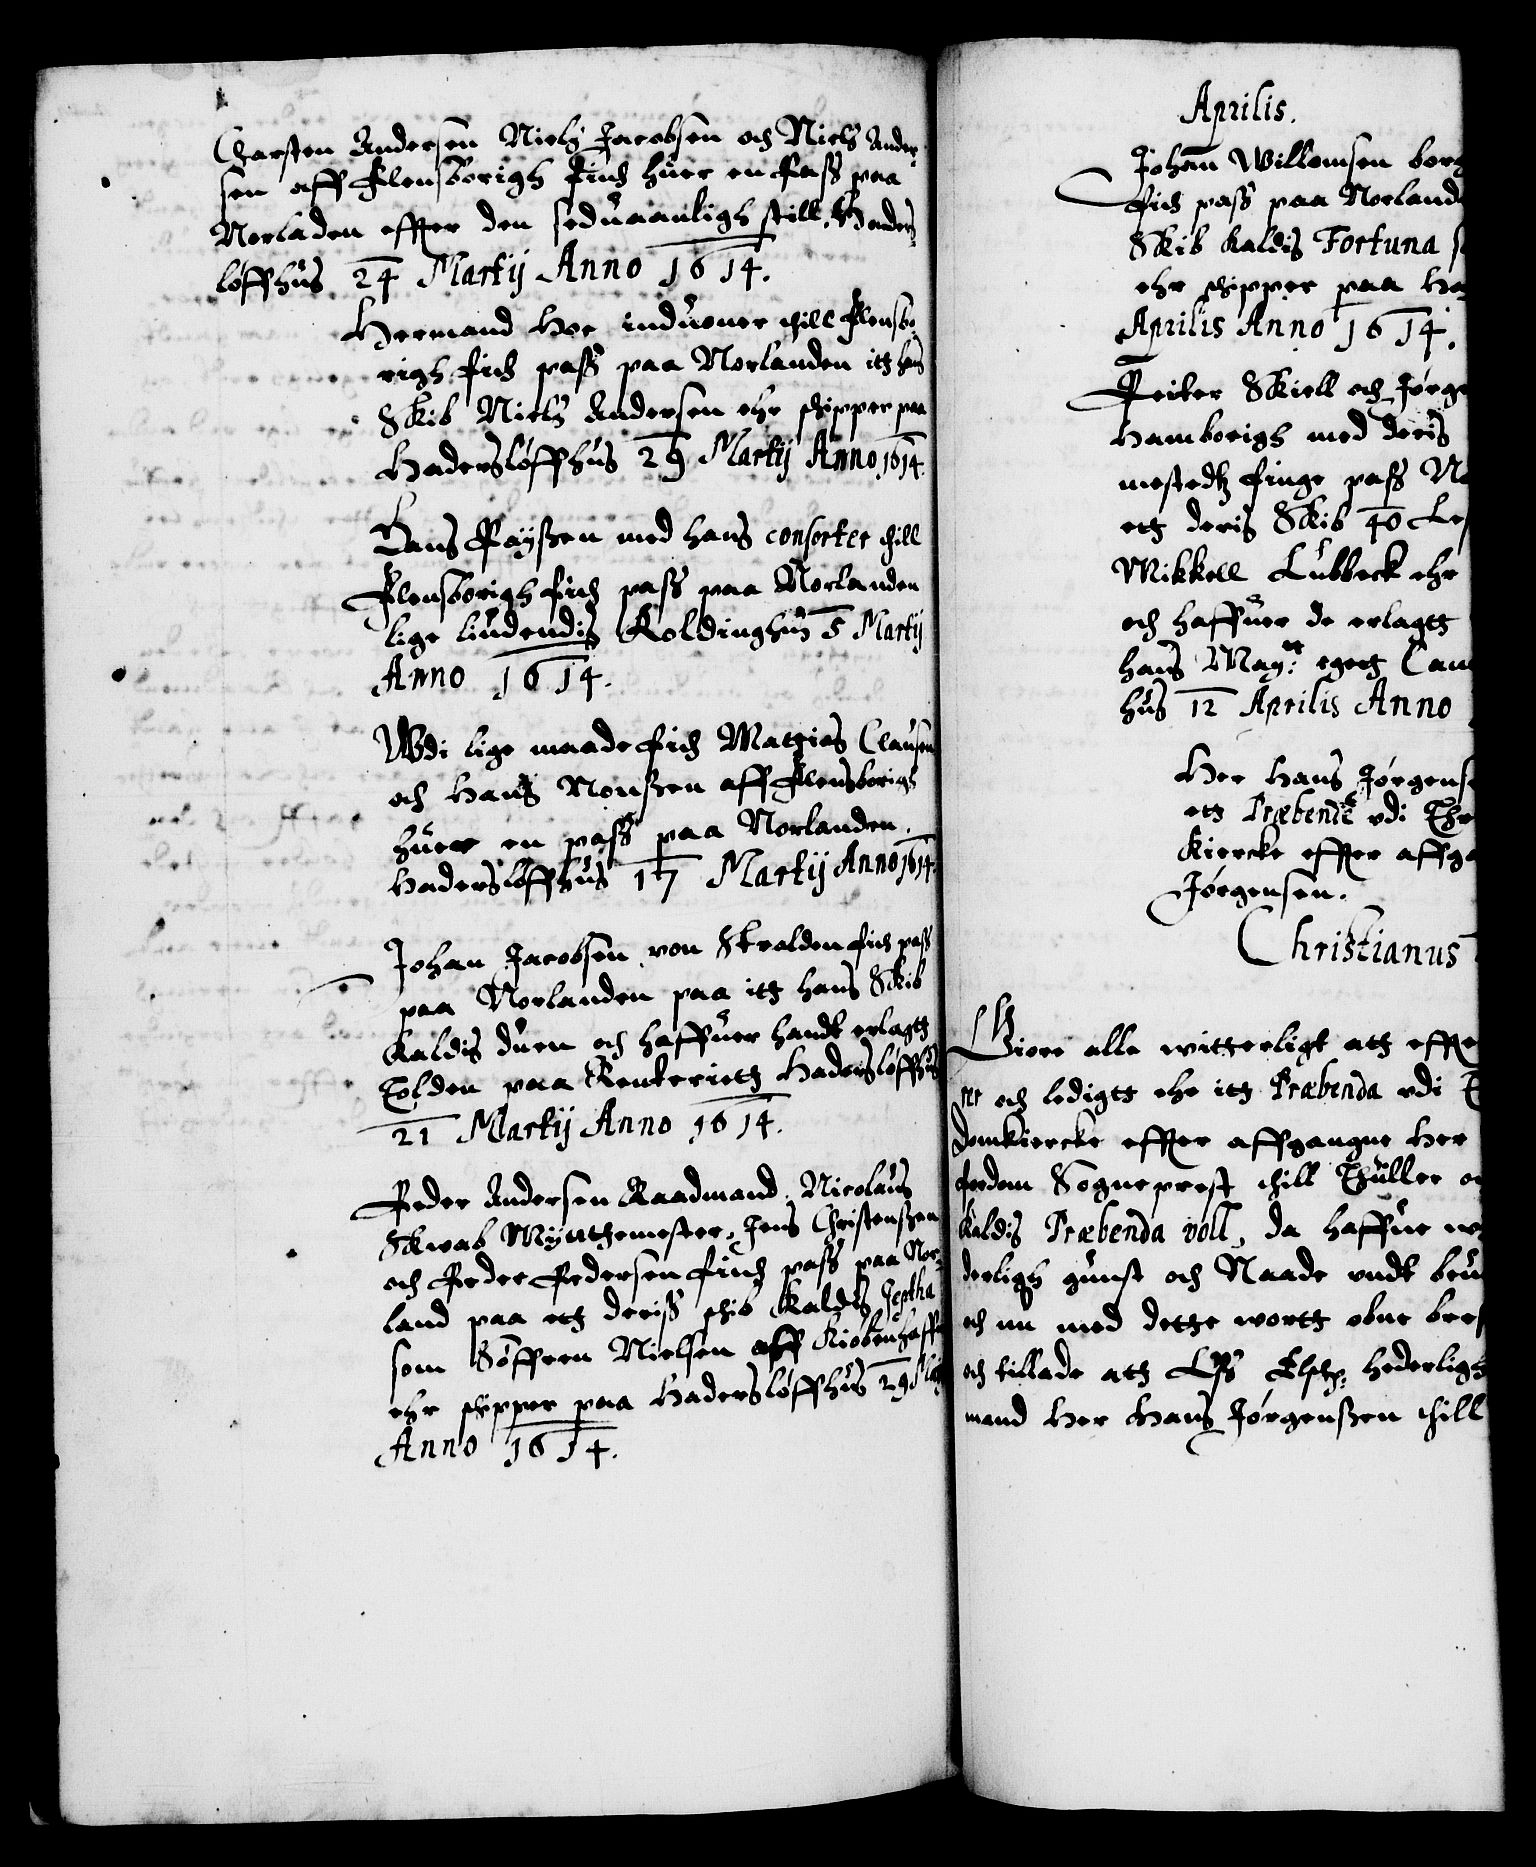 Charsten Andersen Niels Jacobsen och Niels Ander-
sen aff Flensborigh finch huer en Pass paa
Norladen effter den seduaanligh still. Haders-
løffhus 24 Martij Anno 1614.
Hermand Hoe induoner thill Flensbo
righ fich pass paa Norlanden itt hans
Skib Niels Andersen ehr schipper paa
Hadersløffhus 29 Martij Anno 1614.
Hans Payssen med hans consorter thill
Flensborigh fich pass paa Norlanden
lige liudendis Koldinghus 5 Martij
Anno 1614.
Wdi lige maade fich Matzias Clausen
och Hans Monssen aff Flensborigh
huer en pass paa Norlanden.
Hadersløffhus 17 Martij Anno 1614.
Johan Jacobsen von Stralden fich pass
paa Norlanden paa itt hans Skib
Kaldis duen och haffuer handt erlagtt
Tolden paa Renteriett Hadersløffhus
21 Martij Anno 1614.
Peder Andersen Raadmand, Nicolaus
Skwab Mynthemester, Jens Christenssen
och Peder Pedersen finch pass paa Nor-
land paa ett deriss schib Kaldis Jeptha
som Søffren Nielsen aff Kiøbenhaffn
ehr schipper paa Hadersløffhus 29 Martij
Anno 1614.
Aprilis.
Johan Willomsen borg
fich pass paa Norland
Skib Kaldis Fortuna s
ehr schipper paa Ha
Aprilis Anno 1614.
Peiter Skiell och Jørge
Hamborigh med deris
mestedtz finge pass No
ett deris Skib 40 Les
Mikkell Lubbeck ehr
och haffuer de erlagtt
hans May:tt egett Cam
hus 12 Aprilis Anno
Her Hans Jørgens
ett Præbende vdi
Kiercke effter affga
Jørgensen.
Christianus
Giore alle witterligt att effte
rer och ledigtt ehr itt Præbenda vdi
domkiercke effter affgangne Her
fordom Sogneprest thill Thuller o
Kaldis Præbenda voll, da haffue w
derligh gunst och Naade vndt beu
och nu med dette wortt obne bref
och tillade att Oss Elsk: hederligh
mand Her Hans Jørgenssen thill